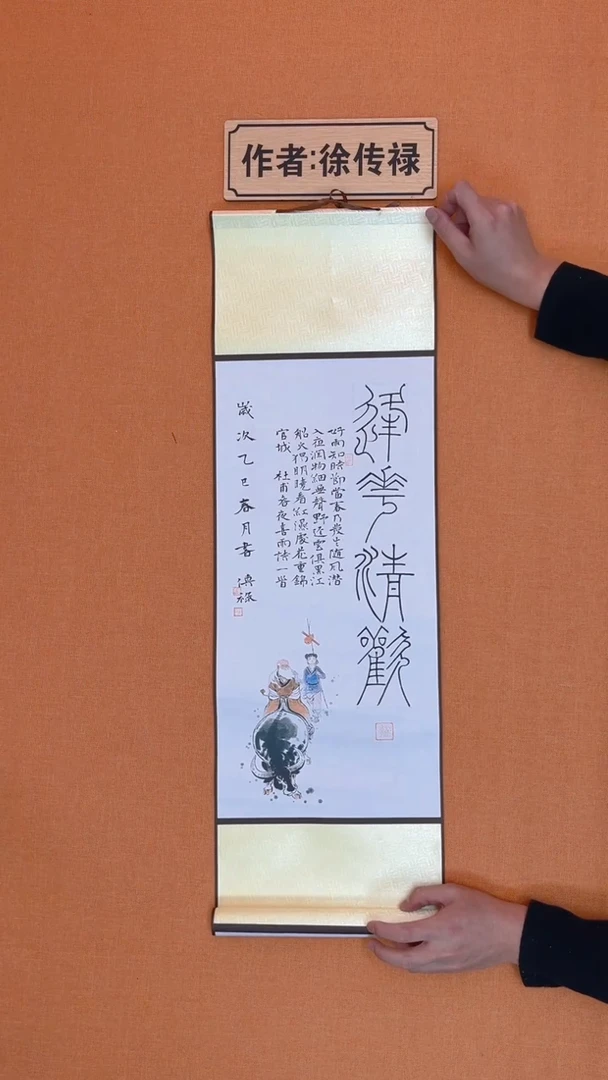 作者:徐传禄
華清觀
好雨知時節當春乃發生隨風潛
入夜潤物細無聲野徑雲俱黑江
船火獨明曉看紅濕處花重錦
官城 杜甫春夜喜雨詩一首
歲次乙巳春月書 傳祿